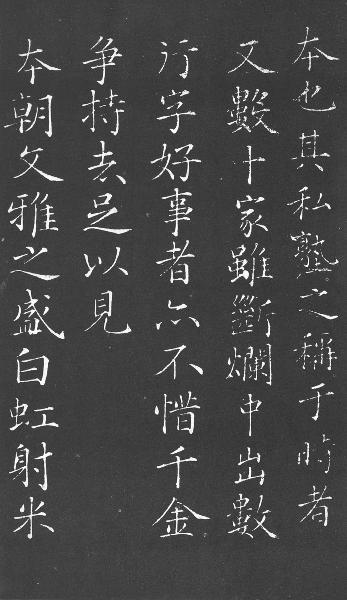 本也其私塾之稱于時者
又數十家雖斷爛中出數
行字好事者亦不惜千金
争持去足以見
本朝文雅之盛白虹射米